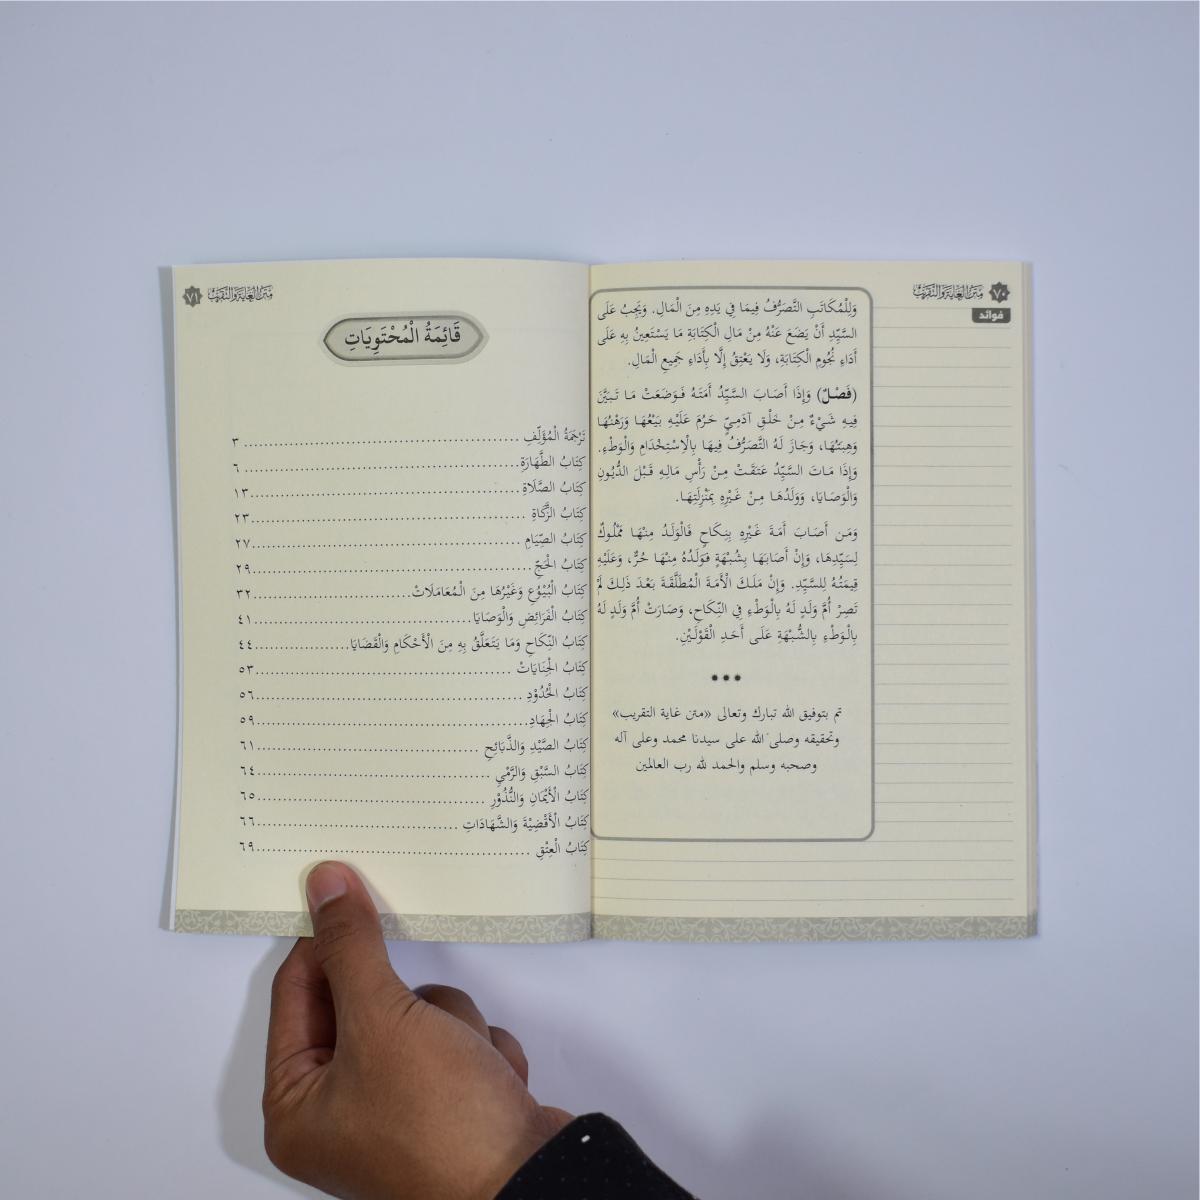 ٧٠ متن الغاية والتقريب
فوائد
وَلِلْمُكَاتَبِ التَّصَرُّفُ فِيمَا فِي يَدِهِ مِنَ الْمَالِ. وَيَجِبُ عَلَى
السَّيِّدِ أَنْ يَضَعَ عَنْهُ مِنْ مَالِ الْكِتَابَةِ مَا يَسْتَعِينُ بِهِ عَلَى
أَدَاءِ نُجُومِ الْكِتَابَةِ، وَلَا يَعْتِقُ إِلَّا بِأَدَاءِ جَمِيعِ الْمَالِ.
(فَصْلٌ) وَإِذَا أَصَابَ السَّيِّدُ أَمَتَهُ فَوَضَعَتْ مَا تَبَيَّنَ
فِيهِ شَيْءٌ مِنْ خَلْقِ آدَمِيٍّ حَرُمَ عَلَيْهِ بَيْعُهَا وَرَهْنُهَا
وَهِبَتُهَا، وَجَازَ لَهُ التَّصَرُّفُ فِيهَا بِالْاِسْتِخْدَامِ وَالْوَطْءِ.
وَإِذَا مَاتَ السَّيِّدُ عَتَقَتْ مِنْ رَأْسِ مَالِهِ قَبْلَ الدُّيُونِ
وَالْوَصَايَا، وَوَلَدُهَا مِنْ غَيْرِهِ بِمَنْزِلَتِهَا.
وَمَن أَصَابَ أَمَةَ غَيْرِهِ بِنِكَاحٍ فَالْوَلَدُ مِنْهَا مَمْلُوكٌ
لِسَيِّدِهَا، وَإِنْ أَصَابَهَا بِشُبْهَةٍ فَوَلَدُهُ مِنْهَا حُرٌّ، وَعَلَيْهِ
قِيمَتُهُ لِلسَّيِّدِ. وَإِنْ مَلَكَ الْأَمَةَ الْمُطَلَّقَةَ بَعْدَ ذَلِكَ لَمْ
تَصِرْ أُمَّ وَلَدٍ لَهُ بِالْوَطْءِ فِي النِّكَاحِ، وَصَارَتْ أُمَّ وَلَدٍ لَهُ
بِالْوَطْءِ بِالشُّبْهَةِ عَلَى أَحَدِ الْقَوْلَيْنِ.
تم بتوفيق الله تبارك وتعالى «متن غاية التقريب»
وتحقيقه وصلى الله على سيدنا محمد وعلى آله
وصحبه وسلم والحمد لله رب العالمين
متن الغاية والتقريب ٧١
قَائِمَةُ الْمُحْتَوِيَاتِ
تَرْجَمَةُ الْمُؤَلِّفِ ................ ٣
كِتَابُ الطَّهَارَةِ ................ ٦
كِتَابُ الصَّلَاةِ ................ ١٣
كِتَابُ الزَّكَاةِ ................ ٢٣
كِتَابُ الصِّيَامِ ................ ٢٧
كِتَابُ الْحَجِّ ................ ٢٩
كِتَابُ الْبُيُوْعِ وَغَيْرُهَا مِنَ الْمُعَامَلَاتْ ................ ٣٢
كِتَابُ الْفَرَائِضِ وَالْوَصَايَا ................ ٤١
كِتَابُ النِّكَاحِ وَمَا يَتَعَلَّقُ بِهِ مِنَ الْأَحْكَامِ وَالْقَضَايَا ................ ٤٤
كِتَابُ الْجِنَايَاتْ ................ ٥٣
كِتَابُ الْحُدُوْدِ ................ ٥٦
كِتَابُ الْجِهَادِ ................ ٥٩
كِتَابُ الصَّيْدِ وَالذَّبَائِحِ ................ ٦١
كِتَابُ السَّبْقِ وَالرَّمْيِ ................ ٦٤
كِتَابُ الْأَيْمَانِ وَالنُّذُوْرِ ................ ٦٥
كِتَابُ الْأَقْضِيَّةَ وَالشَّهَادَاتِ ................ ٦٦
كِتَابُ الْعِتْقِ ................ ٦٩